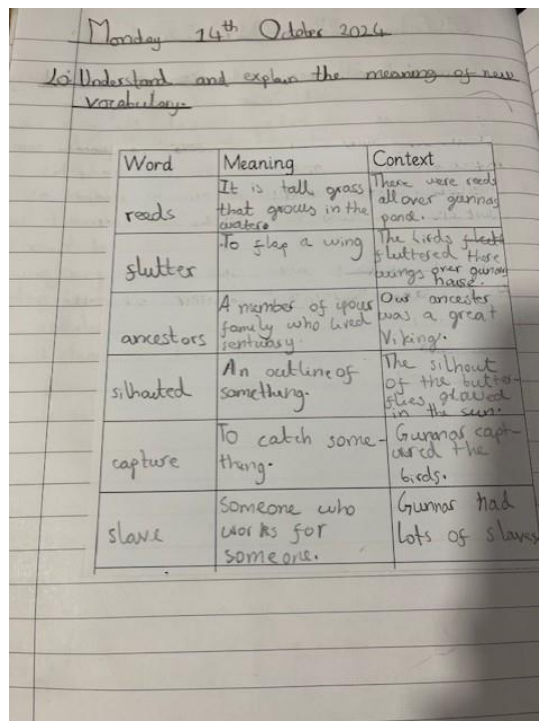 Monday 14th October 2024
Lo: Understand and explain the meaning of new
vocabulary.
Word Meaning Context
reeds
It is tall grass
that grows in the
water.
There were reeds
all over gunnar
pond.
flutter
To flap a wing
The birds
fluttered there
wings over gunnar
house.
ancestors
A member of your
family who lived
Our ancester
was a great
Viking.
silhouted
An outline of
something.
The silhout
of the butter-
flies glowed
in the sun.
capture
To catch some-
thing.
Gunnar capt-
ured the
birds.
slave
Someone who
works for
someone.
Gunnar had
lots of slaves